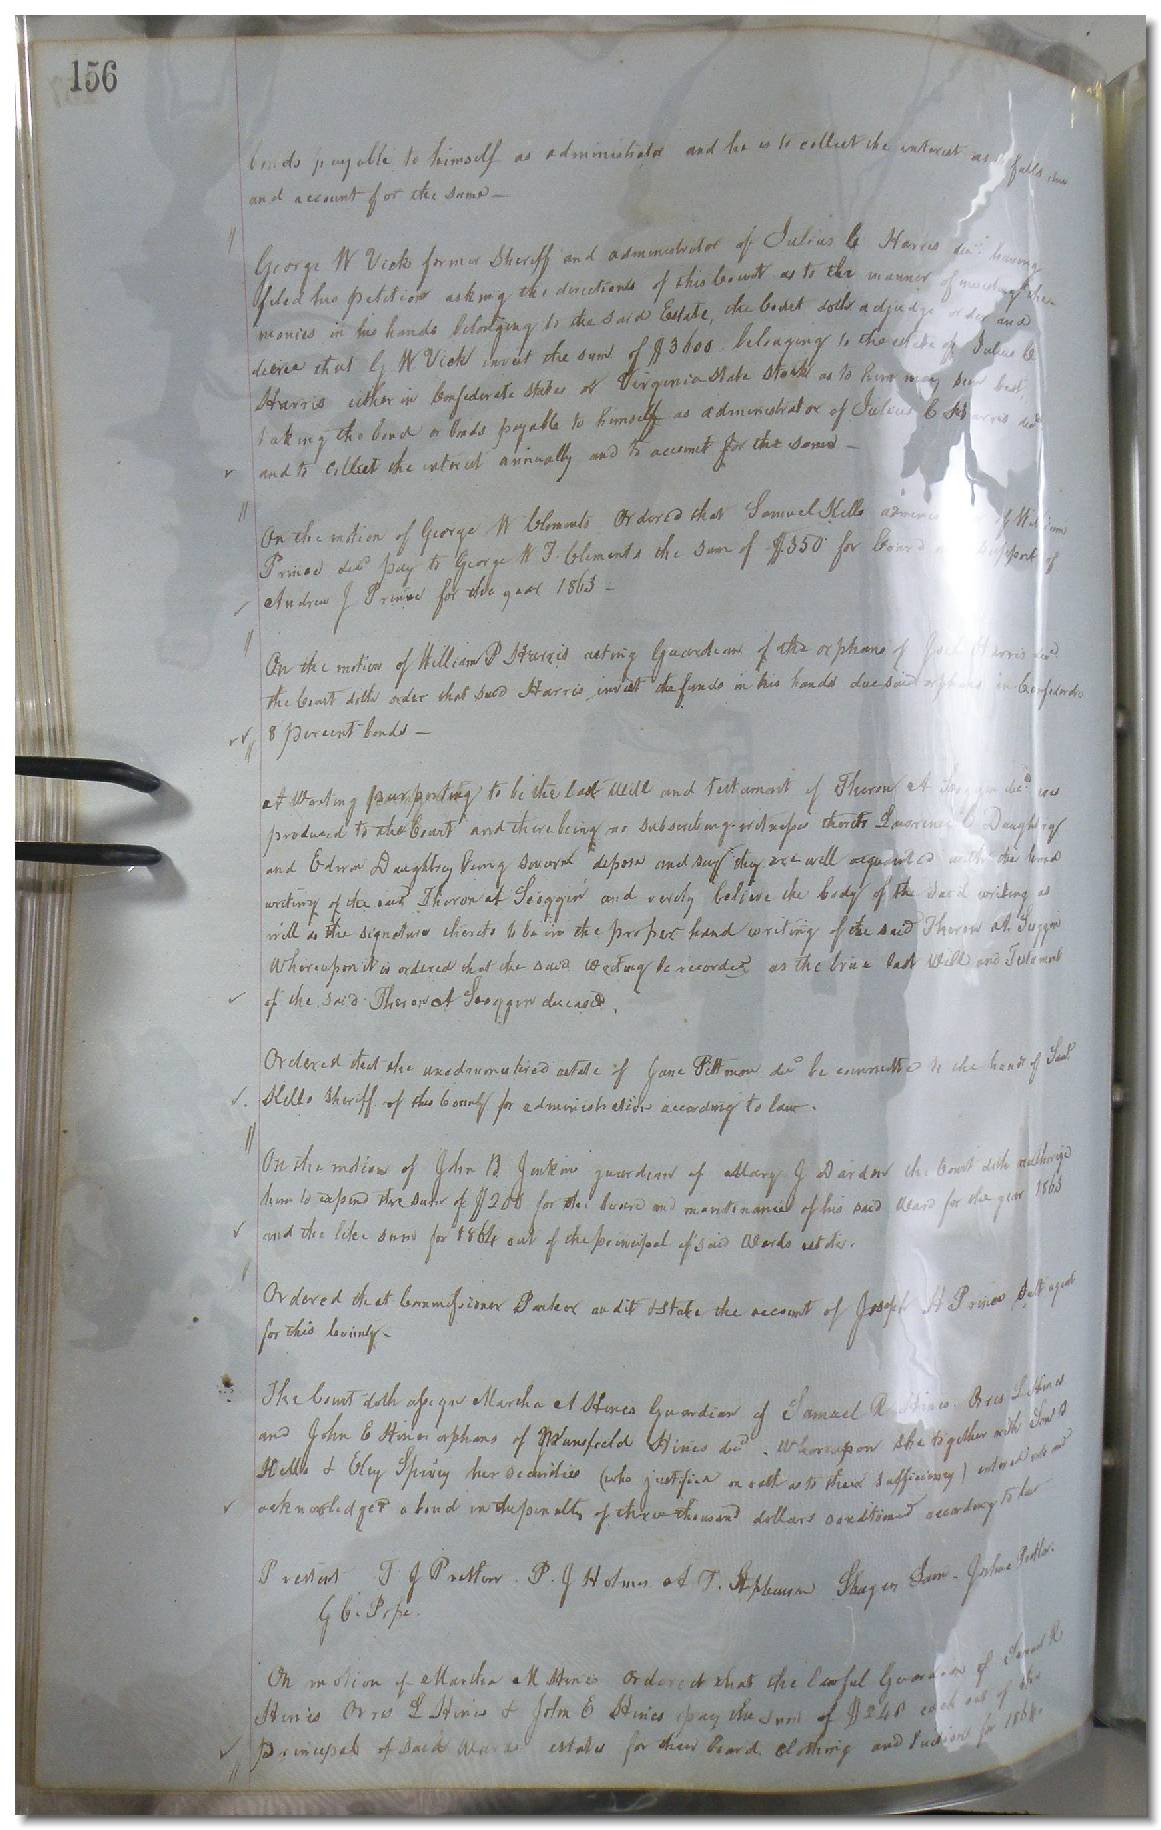 156
bonds payable to himself as administrator and he is to collect the interest as it falls due
and account for the same —
George W Vick former Sheriff and administrator of Julius C Harris decd. having
filed his petition asking the directions of this Court as to the manner of investing the
monies in his hands belonging to the said Estate, the Court doth adjudge order and
decree that G W Vick invest the sum of $3600 belonging to the estate of Julius C
Harris either in Confederate States or Virginia State Stock as to him may seem best,
taking the bond or bonds payable to himself as administrator of Julius C Harris decd
and to collect the interest annually and to account for the same —
On the motion of George W Clements Ordered that Samuel Kello of William
Prince decd pay to George W T Clements the sum of $350 for board support of
Andrew J Prince for the year 1863 —
On the motion of William P Harris acting Guardian of the orphans of Harris decd.
the Court doth order that said Harris invest the funds in his hands due said orphans in Confederate
8 percent bonds —
A Writing purporting to be the last Will and testament of Theron A decd. was
produced to the Court and there being no subscribing witnesses thereto Lawrence C Daughtry
and Edwin Daughtrey being sworn depose and say they are well acquainted with the hand
writing of the said Theron A Scoggin and verily believe the body of the said writing as
well as the signature thereto to be in the proper hand writing of the said Theron A. Scoggin
Whereupon it is ordered that the said writing be recorded as the true last Will and Testament
of the said Theron A Scoggin deceased.
Ordered that the unadministered estate of Jane Pittman decd be committed to the hands of Saml
Kello Sheriff of this County for administration according to law.
On the motion of John B Jenkins guardian of Mary J Darden the Court doth authorize
him to expend the sum of $200 for the board and maintenance of his said Ward for the year 1863
and the like sum for 1864 out of the principal of said Wards estate.
Ordered that Commissioner Parker audit & state the account of Joseph H Prince Salt agent
for this County.
The Court doth assign Martha A Hines Guardian of Samuel R Hines. Orris L Hines
and John E Hines orphans of Mansfield Hines decd. Whereupon she together with Saml
Kello & Eley Spivey her securities (who justified on oath as to their sufficiency) entered into and
acknowledged a bond in the penalty of three thousand dollars conditioned according to law
Present T J Pretlow. P. J Holmes A T. Stephenson
G C. Pope.
On motion of Martha M Hines Ordered that the lawful Guardian of Samuel R
Hines Orris L Hines & John E Hines pay the sum of $240 each out of the
principal of said wards estates for their board, clothing and tuition for 1864.